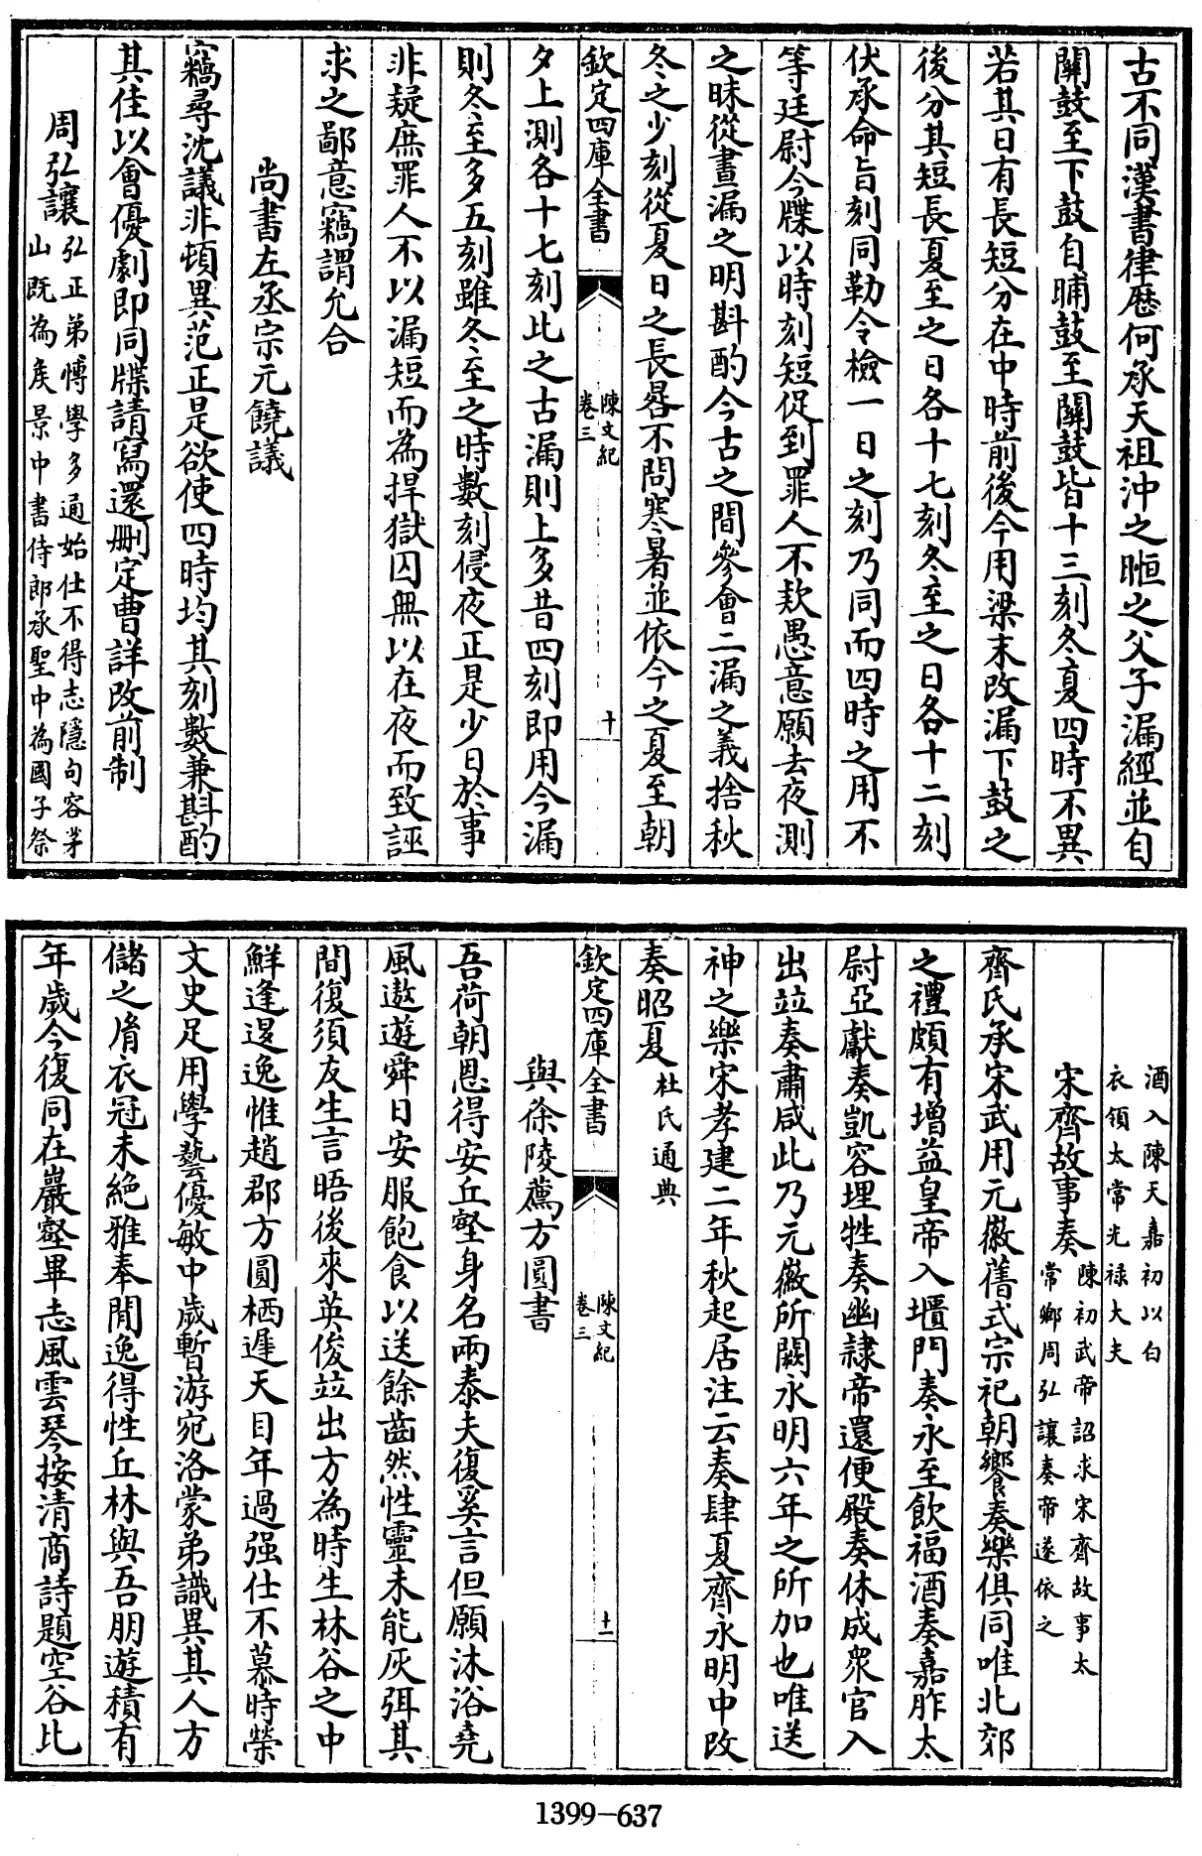 古不同漢書律歷何承天祖沖之暅之父子漏經並自
關鼓至下鼓自晡鼓至關鼓皆十三刻冬夏四時不異
若其日有長短分在中時前後今用梁末改漏下鼓之
後分其短長夏至之日各十七刻冬至之日各十二刻
伏承命旨刻同勒令檢一日之刻乃同而四時之用不
等廷尉今牒以時刻短促到罪人不款愚意願去夜測
之昧從晝漏之明斟酌今古之間參會二漏之義捨秋
冬之少刻從夏日之長晷不問寒暑並依今之夏至朝
欽定四庫全書
陳文紀
卷三
十
夕上測各十七刻比之古漏則上多昔四刻即用今漏
則冬至多五刻雖冬至之時數刻侵夜正是少日於事
非疑庶罪人不以漏短而為捍獄囚無以在夜而致誣
求之鄙意竊謂允合
尚書左丞宗元饒議
竊尋沈議非頓異范正是欲使四時均其刻數兼斟酌
其佳以會優劇即同牒請寫還刪定曹詳改前制
周弘讓
弘正弟博學多通始仕不得志隱句容茅
山既為矦景中書侍郎承聖中為國子祭
酒入陳天嘉初以白
衣領太常光祿大夫
宋齊故事奏
陳初武帝詔求宋齊故事太
常鄉周弘讓奏帝遂依之
齊氏承宋武用元徽舊式宗祀朝饗奏樂俱同唯北郊
之禮頗有增益皇帝入壝門奏永至飲福酒奏嘉胙太
尉亞獻奏凱容埋牲奏幽隸帝還便殿奏休成衆官入
出竝奏肅咸此乃元徽所闕永明六年之所加也唯送
神之樂宋孝建二年秋起居注云奏肆夏齊永明中改
奏昭夏
杜氏通典
欽定四庫全書
陳文紀
卷三
十一
與徐陵薦方圓書
吾荷朝恩得安丘壑身名兩泰夫復奚言但願沐浴堯
風遨遊舜日安服飽食以送餘齒然性靈未能灰弭其
間復須友生言晤後來英俊竝出方為時生林谷之中
鮮逢遐逸惟趙郡方圓栖遲天目年過强仕不慕時榮
文史足用學藝優敏中歲暫游宛洛蒙弟識異其人方
儲之胤衣冠未絶雅奉閒逸得性丘林與吾朋遊積有
年歲今復同在巖壑畢志風雲琴按清商詩題空谷比
1399-637